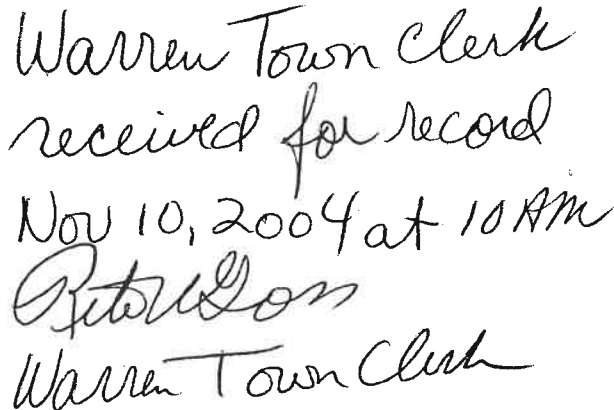 Warren Town Clerk
received for record
Nov 10, 2004 at 10 AM
Reta K Goss
Warren Town Clerk